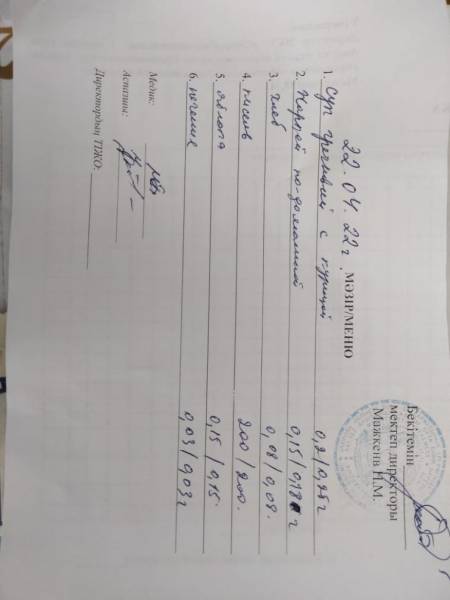 Бекітемін
мектеп директоры
Мажкенв Н.М.
22.04.22г.
МӘЗІР/МЕНЮ
1. Суп гречневый с курицей 0,2/0,25г
2. Картоф по-домашнему 0,15/0,18г
3. хлеб 0,08/0,08.
4. кисель 200/200.
5. яблоко 0,15/0,15.
6. печенье 0,03/0,03г
Медик:
Аспазшы:
Директордың ТІЖО: